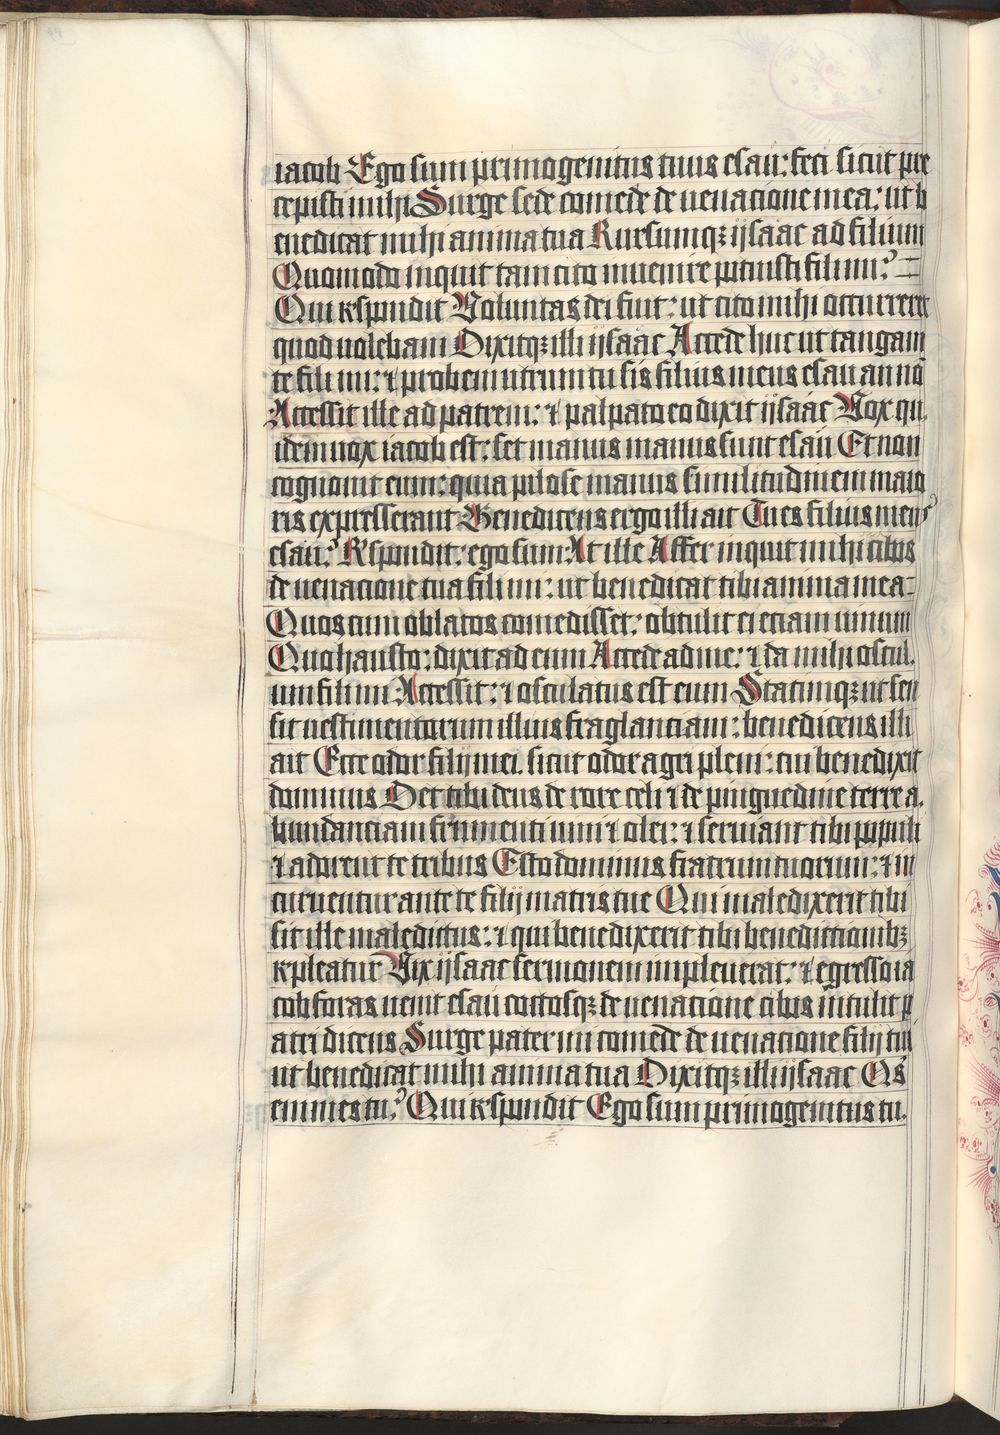 iacob Ego sum primogenitus tuus esau: feci sicut pre
cepisti mihi Surge sede comede de uenacione mea: ut b
enedicat mihi anima tua Rursumqȝ ijsaac ad filium
Quomodo inquit tam cito inuenire potuisti fili mi?
Qui respondit Voluntas dei fuit: ut cito mihi occurreret
quod uolebam Dixitqȝ illi ijsaac Accede huc ut tangam
te fili mi: ⁊ probem utrum tu sis filius meus esau an nō
Accessit ille ad patrem: ⁊ palpato eo dixit ijsaac Vox qu
idem uox iacob est: set manus manus sunt esau Et non
cognouit eum: quia pilose manus similitudinem maio
ris expresserant Benedicens ergo illi ait Tu es filius meus
esau? Respondit: ego sum At ille Affer inquit mihi cibos
de uenacione tua fili mi: ut benedicat tibi anima mea
Quos cum oblatos comedisset: obtulit ei eciam uinum
Quo hausto: dixit ad eum Accede ad me: ⁊ da mihi oscul
um fili mi Accessit: ⁊ osculatus est eum Statimqȝ ut sen
sit uestimentorum illius fraglanciam: benedicens illi
ait Ecce odor filij mei sicut odor agri pleni: cui benedixit
dominus Det tibi deus de rore celi ⁊ de pinguedine terre a
bundanciam frumenti uini ⁊ olei: ⁊ seruiant tibi populi
⁊ adorent te tribus Esto dominus fratrum tuorum: ⁊ in
curuentur ante te filij matris tue Qui maledixerit tibi
sit ille maledictus: ⁊ qui benedixerit tibi benedictionibȝ
repleatur Vix ijsaac sermonem impleuerat: ⁊ egresso ia
cob foras uenit esau coctosqȝ de uenacione cibos intulit p
atri dicens Surge pater mi comede de uenacione filij tui
ut benedicat mihi anima tua Dixitqȝ illi ijsaac Qs
enim es tu? Qui respondit Ego sum primogenitus tu